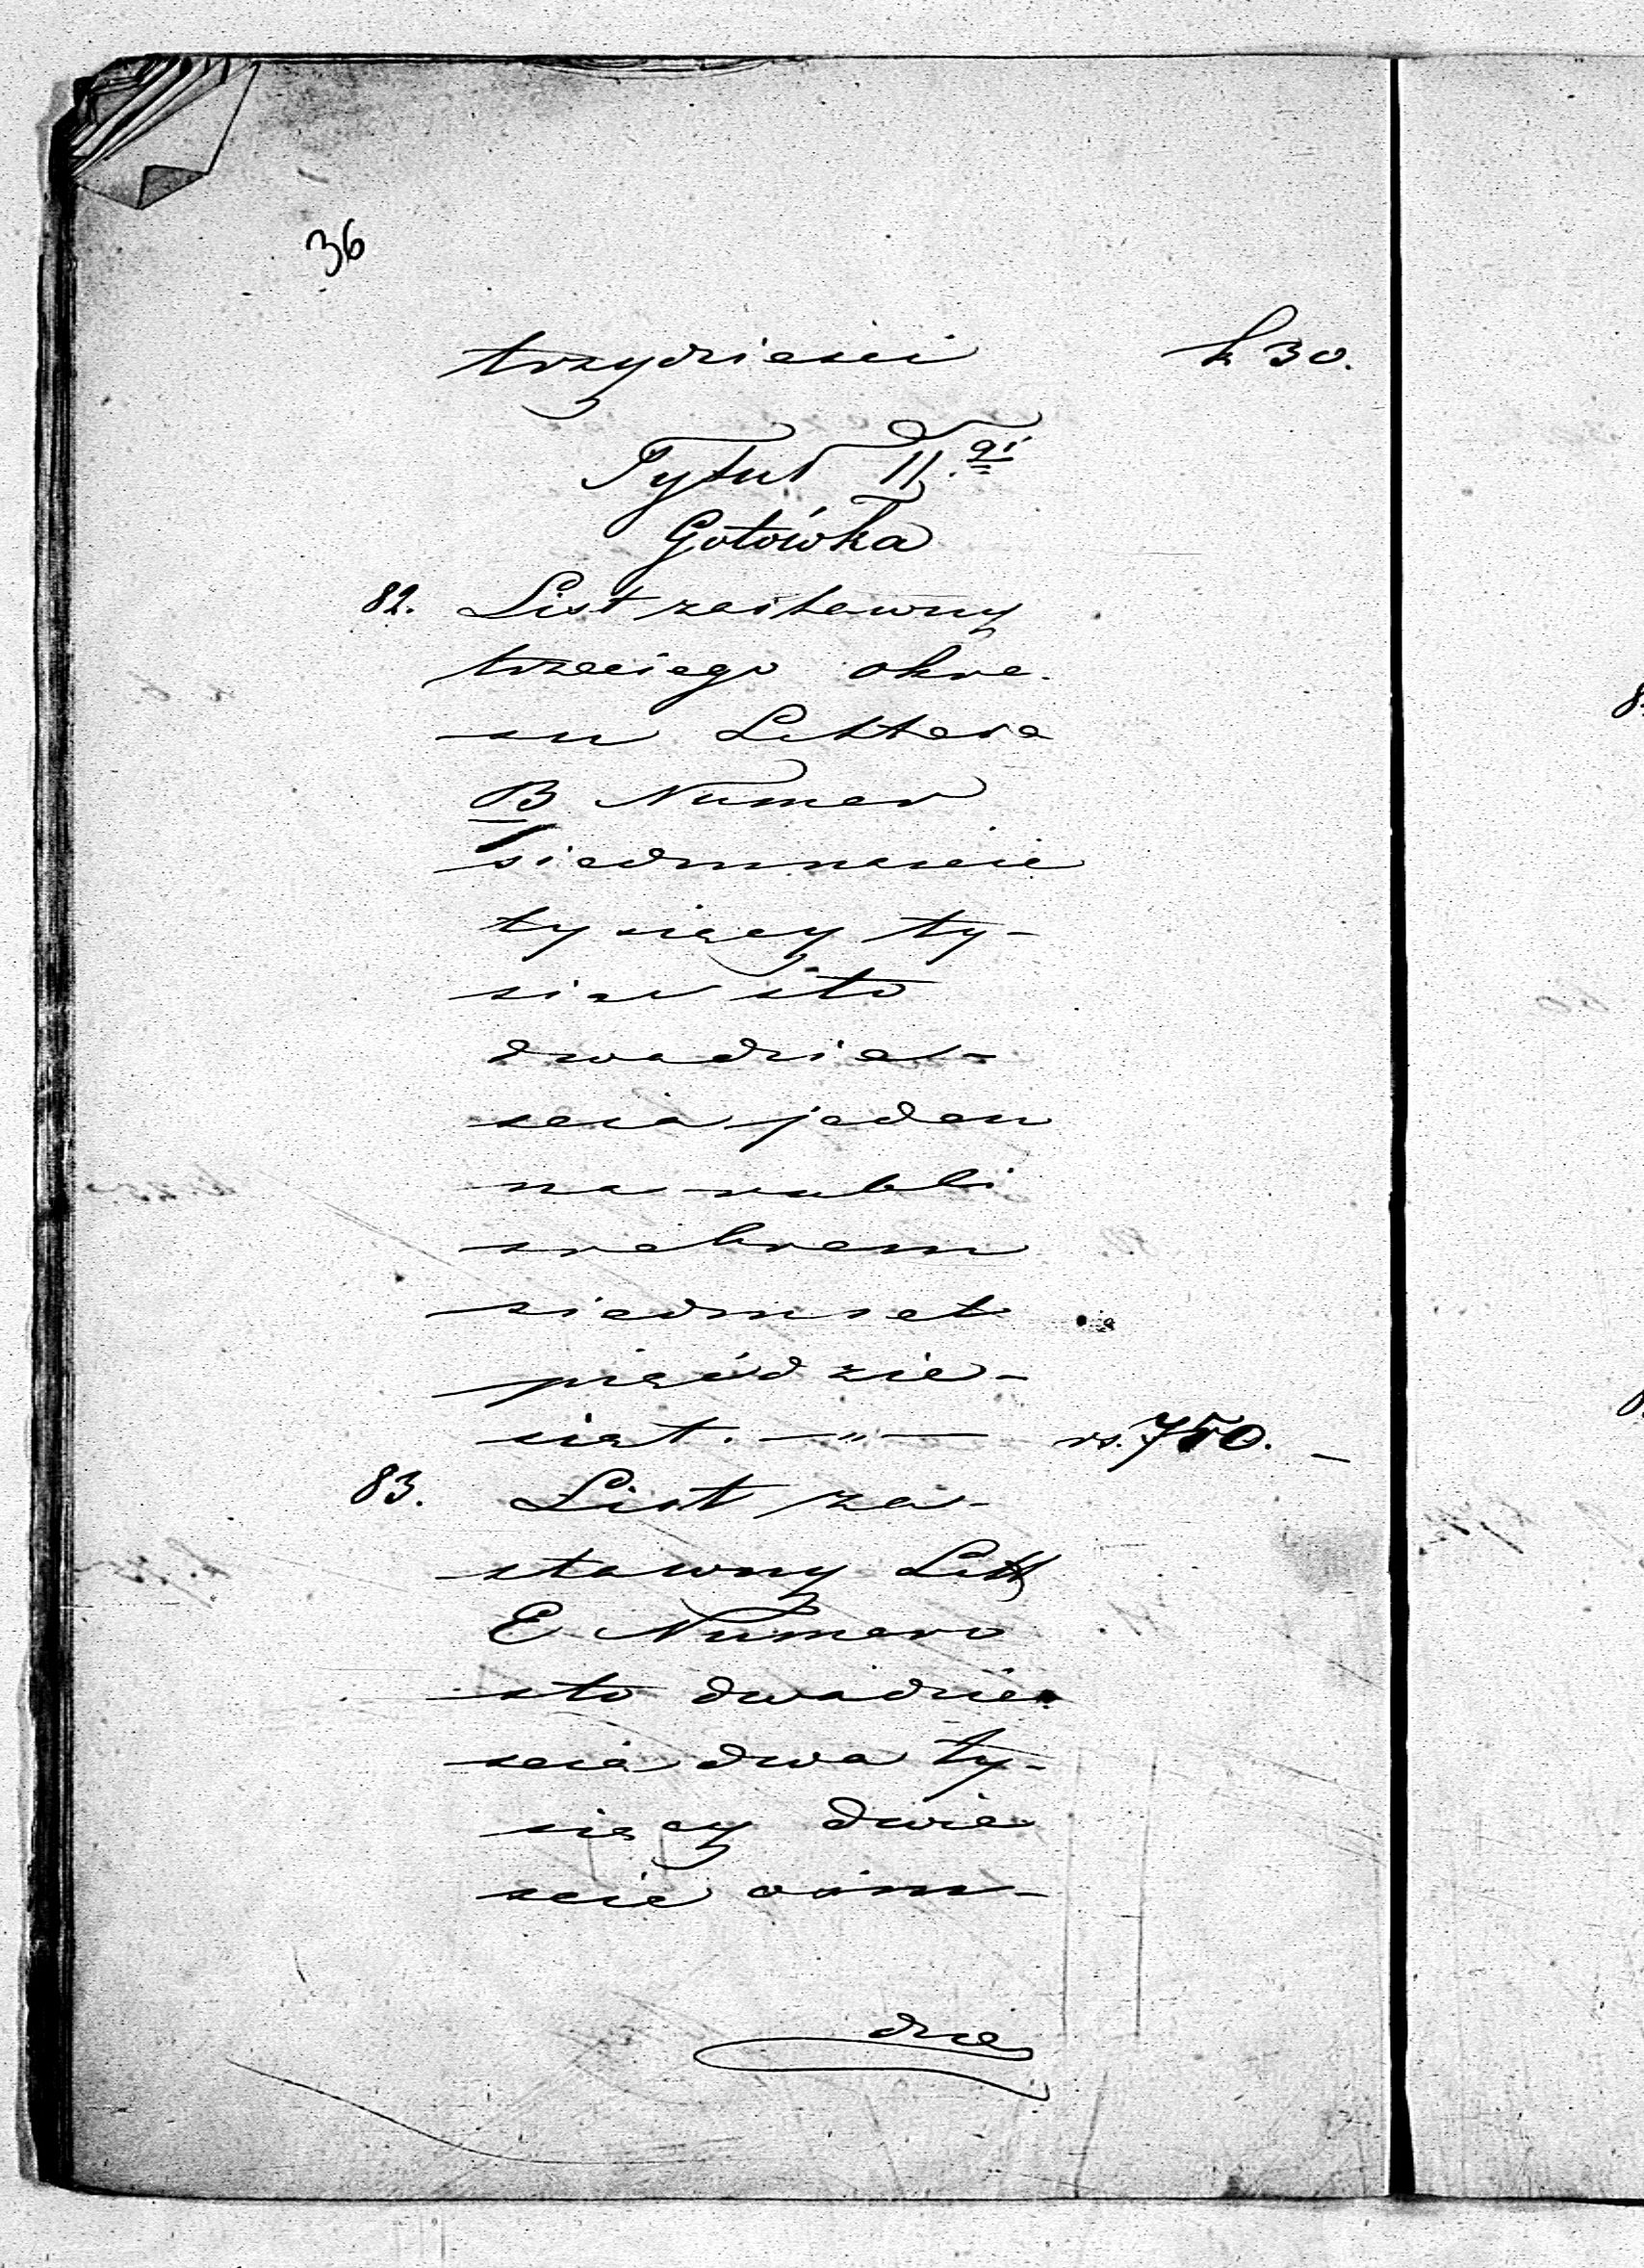 36
trzydzieści k 30.
Tytuł II.gi
Gotówka
82. List zastawny
trzeciego okre-
su Littera
B Numer
siedmnaście
tysięcy ty-
siąc sto
dwadzie-
ścia jeden
na rubli
srebrem
siedmset
pięćdzie-
siąt. — „ — rs. 750. —
83. List za-
stawny Litt
E Numero
sto dwadzie-
ścia dwa ty-
sięcy dwie
ście ośm-
dzie